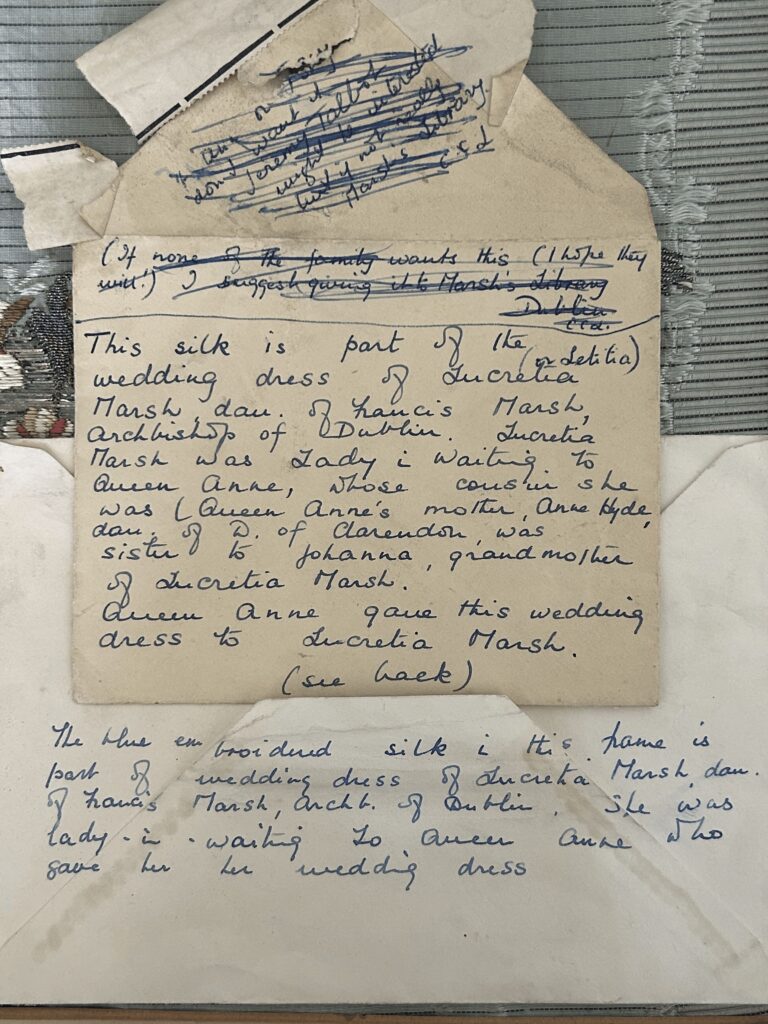 any
don't want it
Jeremy Talbot
might be interested
but if not really
Marsh's Library.
C S L
(If none of the family wants this (I hope they
will!) I suggest giving it to Marsh's Library
Dublin
This silk is part of the
(or Letitia)
wedding dress of Lucretia
Marsh, dau. of Francis Marsh,
Archbishop of Dublin. Lucretia
Marsh was Lady in Waiting to
Queen Anne, whose cousin she
was (Queen Anne's mother, Anne Hyde,
dau. of D. of Clarendon, was
sister to Johanna, grandmother
of Lucretia Marsh.
Queen Anne gave this wedding
dress to Lucretia Marsh.
(see back)
The blue embroidered silk in this frame is
part of wedding dress of Lucretia Marsh, dau.
of Francis Marsh, Archb. of Dublin. She was
lady-in-waiting to Queen Anne who
gave her her wedding dress